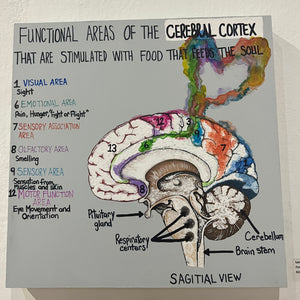 FUNCTIONAL AREAS OF THE CEREBRAL CORTEX
THAT ARE STIMULATED WITH FOOD THAT FEEDS THE SOUL
1 VISUAL AREA
Sight
6 EMOTIONAL AREA
Pain, Hunger, "Fight or Flight"
7 SENSORY ASSOCIATION
AREA
8 OLFACTORY AREA
Smelling
9 SENSORY AREA
Sensation from
Muscles and Skin
12 MOTOR FUNCTION AREA
Eye Movement and
Orientation
13
12
9
7
6
1
8
Pituitary
gland
Respiratory
centers
Cerebellum
Brain stem
SAGITIAL VIEW